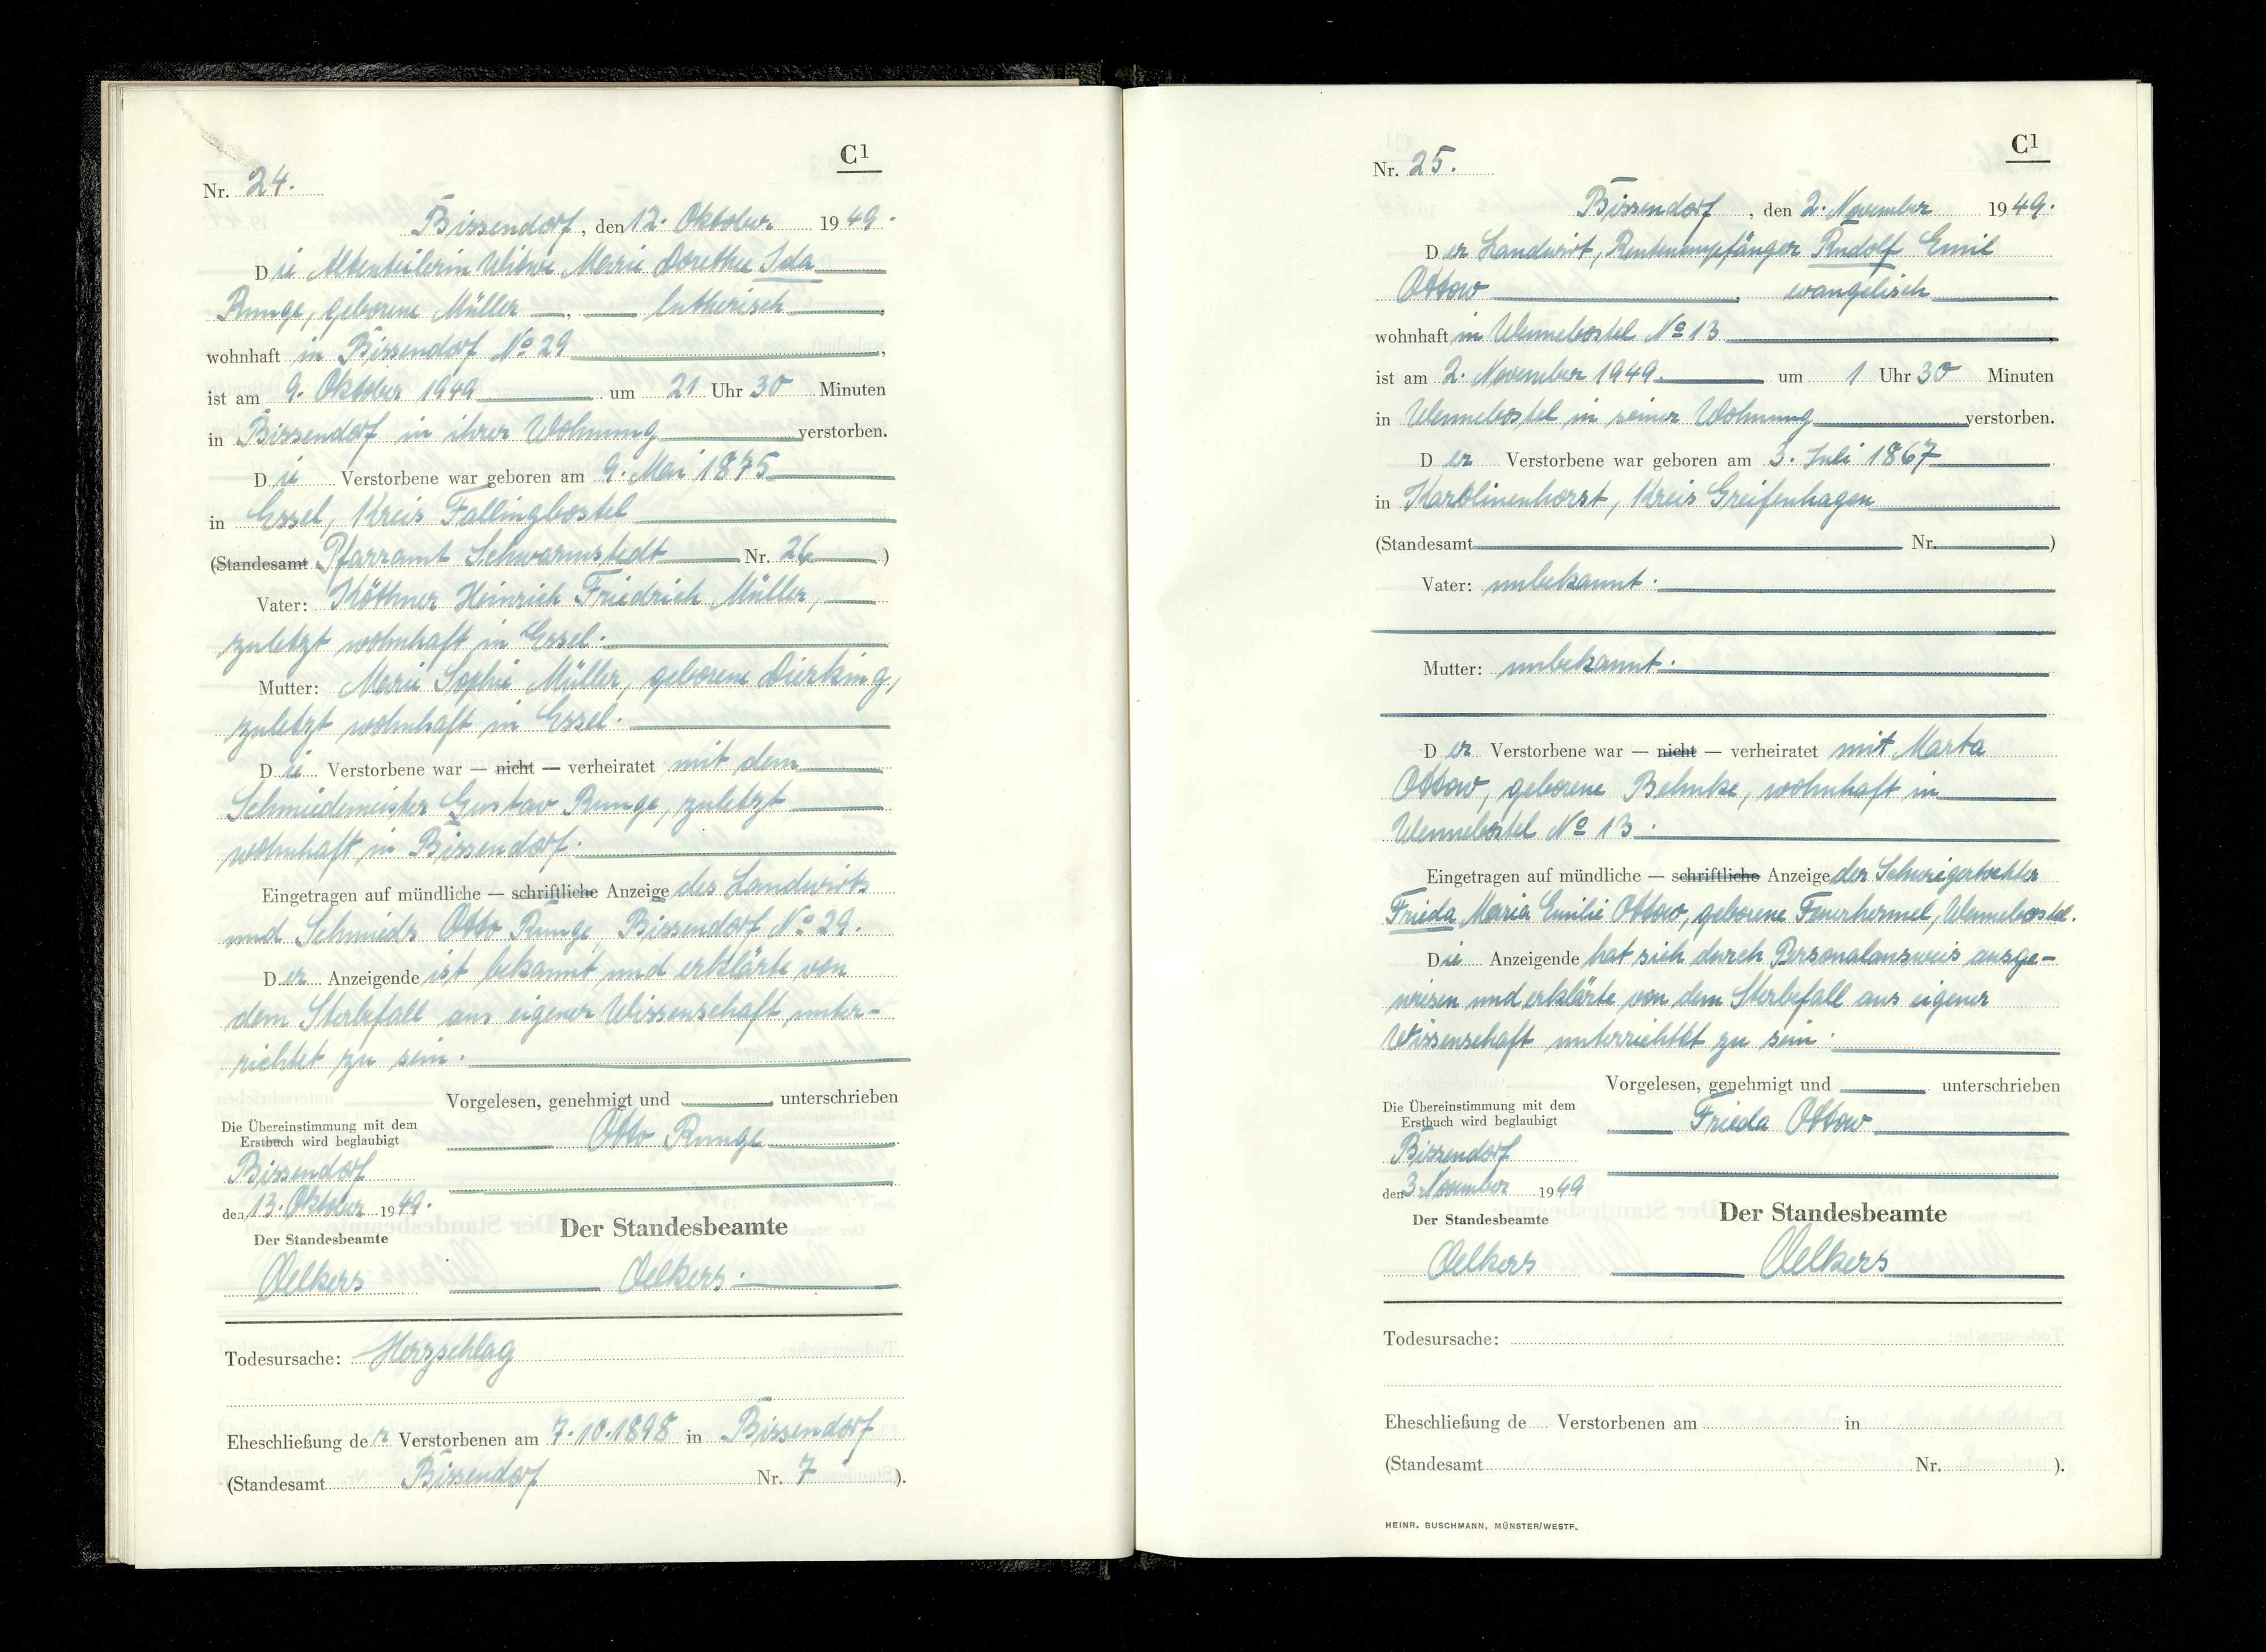 C1
Nr. 24.
Bissendorf, den 12. Oktober 1949.
Die Altenteilerin Witwe Marie Dorothee Ida
Runge, geborene Müller —, — lutherisch
wohnhaft in Bissendorf No 29,
ist am 9. Oktober 1949 um 21 Uhr 30 Minuten
in Bissendorf in ihrer Wohnung verstorben.
Die Verstorbene war geboren am 9. Mai 1875
in Essel, Kreis Fallingbostel
(Standesamt Pfarramt Schwarmstedt Nr. 26)
Vater: Köthner Heinrich Friedrich Müller,
zuletzt wohnhaft in Essel.
Mutter: Marie Sophie Müller, geborene Dierking,
zuletzt wohnhaft in Essel.
Die Verstorbene war — nicht — verheiratet mit dem
Schmiedemeister Gustav Runge, zuletzt
wohnhaft in Bissendorf.
Eingetragen auf mündliche — schriftliche Anzeige des Landwirts
und Schmieds Otto Runge, Bissendorf No 29.
Der Anzeigende ist bekannt und erklärte von
dem Sterbefall aus eigener Wissenschaft unter-
richtet zu sein.
Vorgelesen, genehmigt und unterschrieben
Otto Runge
Die Übereinstimmung mit dem
Erstbuch wird beglaubigt
Bissendorf
den 13. Oktober 1949.
Der Standesbeamte
Oelkers
Der Standesbeamte
Oelkers.
Todesursache: Herzschlag
Eheschließung der Verstorbenen am 7.10.1898 in Bissendorf
(Standesamt Bissendorf Nr. 7).
C1
Nr. 25.
Bissendorf, den 2. November 1949.
Der Landwirt, Rentenempfänger Rudolf Emil
Ottow evangelisch
wohnhaft in Wennebostel No 13
ist am 2. November 1949 um 1 Uhr 30 Minuten
in Wennebostel in seiner Wohnung verstorben.
Der Verstorbene war geboren am 3. Juli 1867
in Karolinenhorst, Kreis Greifenhagen
(Standesamt Nr. )
Vater: unbekannt.
Mutter: unbekannt.
Der Verstorbene war — nicht — verheiratet mit Marta
Ottow, geborene Behnke, wohnhaft in
Wennebostel No 13.
Eingetragen auf mündliche — schriftliche Anzeige der Schwiegertochter
Frieda Maria Emilie Ottow, geborene Feuerhermel, Wennebostel.
Die Anzeigende hat sich durch Personalausweis ausge-
wiesen und erklärte von dem Sterbefall aus eigener
Wissenschaft unterrichtet zu sein.
Vorgelesen, genehmigt und unterschrieben
Frieda Ottow
Die Übereinstimmung mit dem
Erstbuch wird beglaubigt
Bissendorf
den 3. November 1949
Der Standesbeamte
Oelkers
Der Standesbeamte
Oelkers
Todesursache:
Eheschließung de Verstorbenen am in
(Standesamt Nr. ).
HEINR. BUSCHMANN, MÜNSTER/WESTF.